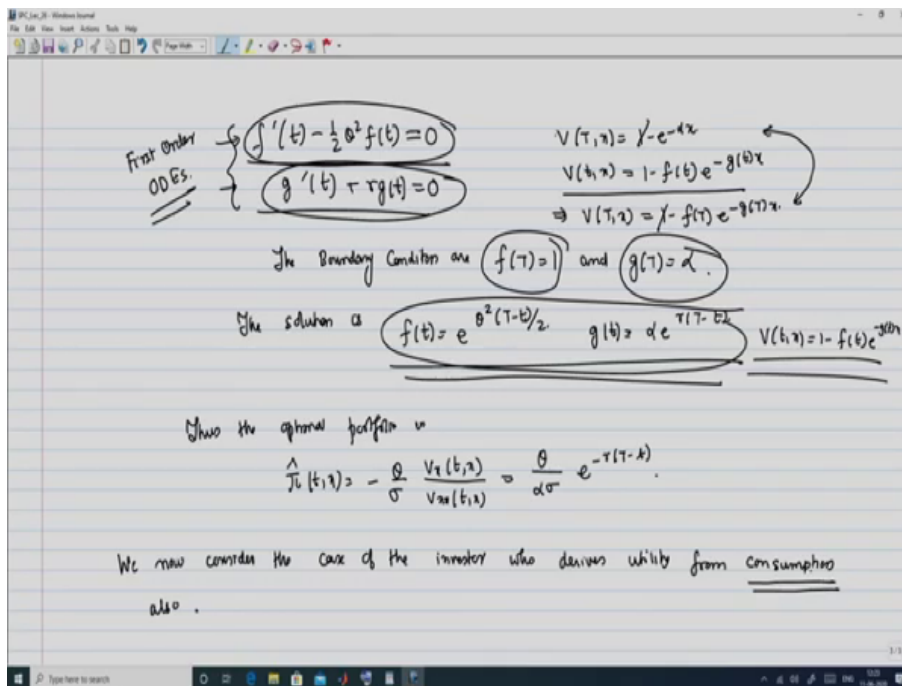 SPC_Lec_20 - Windows Journal
File Edit View Insert Actions Tools Help
Page Width
First Order
ODEs.
f'(t) - ½ θ² f(t) = 0
g'(t) + rg(t) = 0
V(T,x) = 1 - e^{-αx}
V(t,x) = 1 - f(t) e^{-g(t)x}
⇒ V(T,x) = 1 - f(T) e^{-g(T)x}.
The Boundary Condition are f(T) = 1 and g(T) = α.
The solution is f(t) = e^{θ²(T-t)/2} g(t) = α e^{r(T-t)} V(t,x) = 1 - f(t) e^{-g(t)x}
Thus the optimal portfolio is
π̂(t,x) = - θ/σ V_x(t,x)/V_xx(t,x) = θ/ασ e^{-r(T-t)}.
We now consider the case of the investor who derives utility from consumption
also.
Type here to search
ENG